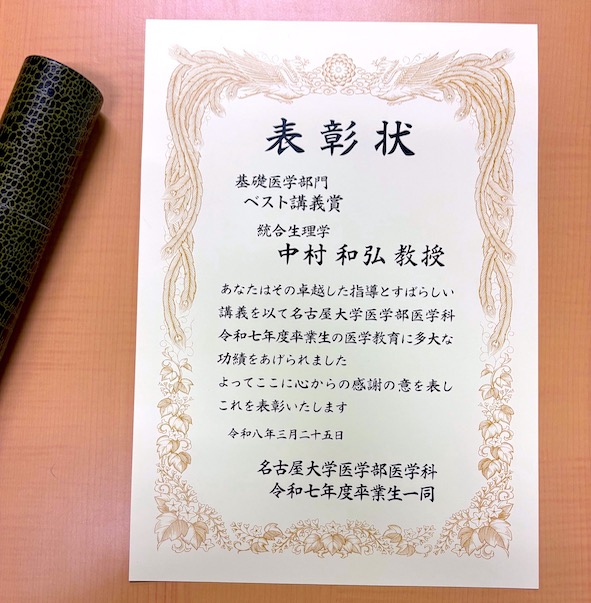 表彰状
基礎医学部門
ベスト講義賞
統合生理学
中村 和弘 教授
あなたはその卓越した指導とすばらしい
講義を以て名古屋大学医学部医学科
令和七年度卒業生の医学教育に多大な
功績をあげられました
よってここに心からの感謝の意を表し
これを表彰いたします
令和八年三月二十五日
名古屋大学医学部医学科
令和七年度卒業生一同